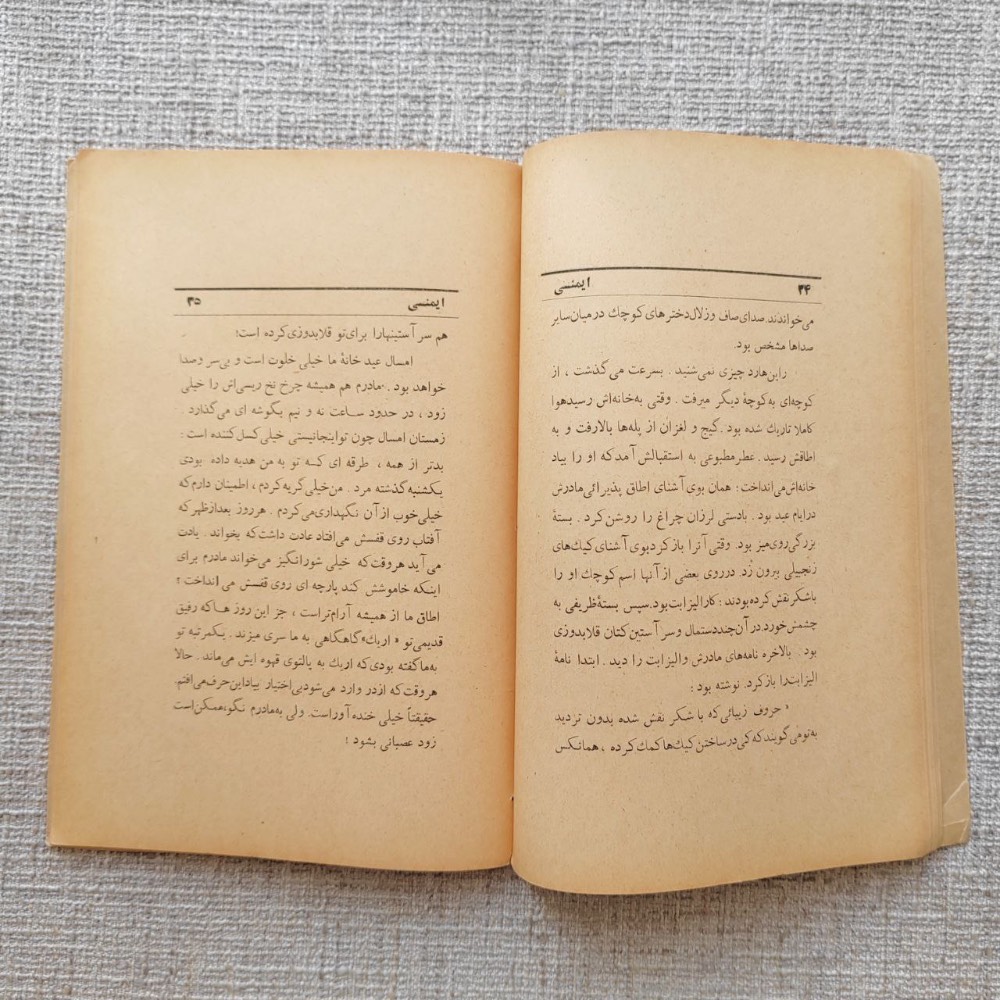 ۳۴ ایمنسی
می‌خواندند. صدای صاف و زلال دخترهای کوچك در میان سایر
صداها مشخص بود.
راین‌هارد چیزی نمی‌شنید . بسرعت می‌گذشت ، از
کوچه‌ای به‌کوچهٔ دیگر میرفت . وقتی به‌خانه‌اش رسیدهوا
کاملا تاریك شده بود . گیج و لغزان از پله‌ها بالارفت و به
اطاقش رسید . عطر مطبوعی به استقبالش آمدکه او را بیاد
خانه‌اش می‌انداخت؛ همان بوی آشنای اطاق پذیرائی مادرش
درایام عید بود . بادستی لرزان چراغ را روشن کرد . بستهٔ
بزرگی روی میز بود. وقتی آنرا باز کردبوی آشنای کیك‌های
زنجبیلی بیرون زد. درروی بعضی از آنها اسم کوچك او را
باشکر نقش کرده بودند : کار الیزابت بود. سپس بستهٔ ظریفی به
چشمش خورد. در آن چند دستمال و سر آستین کتان قلابدوزی
بود . بالاخره نامه‌های مادرش والیزابت را دید . ابتدا نامهٔ
الیزابت‌را بازکرد. نوشته بود :
« حروف زیبائی‌که با شکر نقش شده بدون تردید
به‌تومی‌گویندکه کی در ساختن کیك‌ها کمك کرده ، همانکس
ایمنسی ۳۵
هم سر آستینهارا برای‌تو قلابدوزی کرده است؛
امسال عید خانهٔ ما خیلی خلوت است و بی‌سر وصدا
خواهد بود . مادرم هم همیشه چرخ نخ ریسی‌اش را خیلی
زود ، در حدود ساعت نه و نیم بگوشه ای می‌گذارد .
زمستان امسال چون تواینجانیستی خیلی کسل کننده است :
بدتر از همه ، طرقه ای که تو به من هدیه داده بودی
یکشنبه گذشته مرد . من‌خیلی گریه کردم ، اطمینان دارم که
خیلی خوب از آن نگهداری می‌کردم . هرروز بعدازظهرکه
آفتاب روی قفسش می‌افتاد عادت داشت‌که بخواند . یادت
می‌آید هروقت‌که خیلی شورانگیز می‌خواند مادرم برای
اینکه خاموشش کند پارچه ای روی قفسش می انداخت ؛
اطاق ما از همیشه آرام‌تراست ، جز این روز هاکه رفیق
قدیمی‌تو « اریك» گاهگاهی به ما سری میزند . یکمرتبه تو
به‌ماگفته بودی‌که اریك به پالتوی قهوه ایش می‌ماند . حالا
هروقت‌که ازدر وارد می‌شودبی‌اختیار بیاداین‌حرف می‌افتم.
حقیقتاً خیلی خنده آوراست. ولی به‌مادرم نگو،ممکن‌است
زود عصبانی بشود ؛